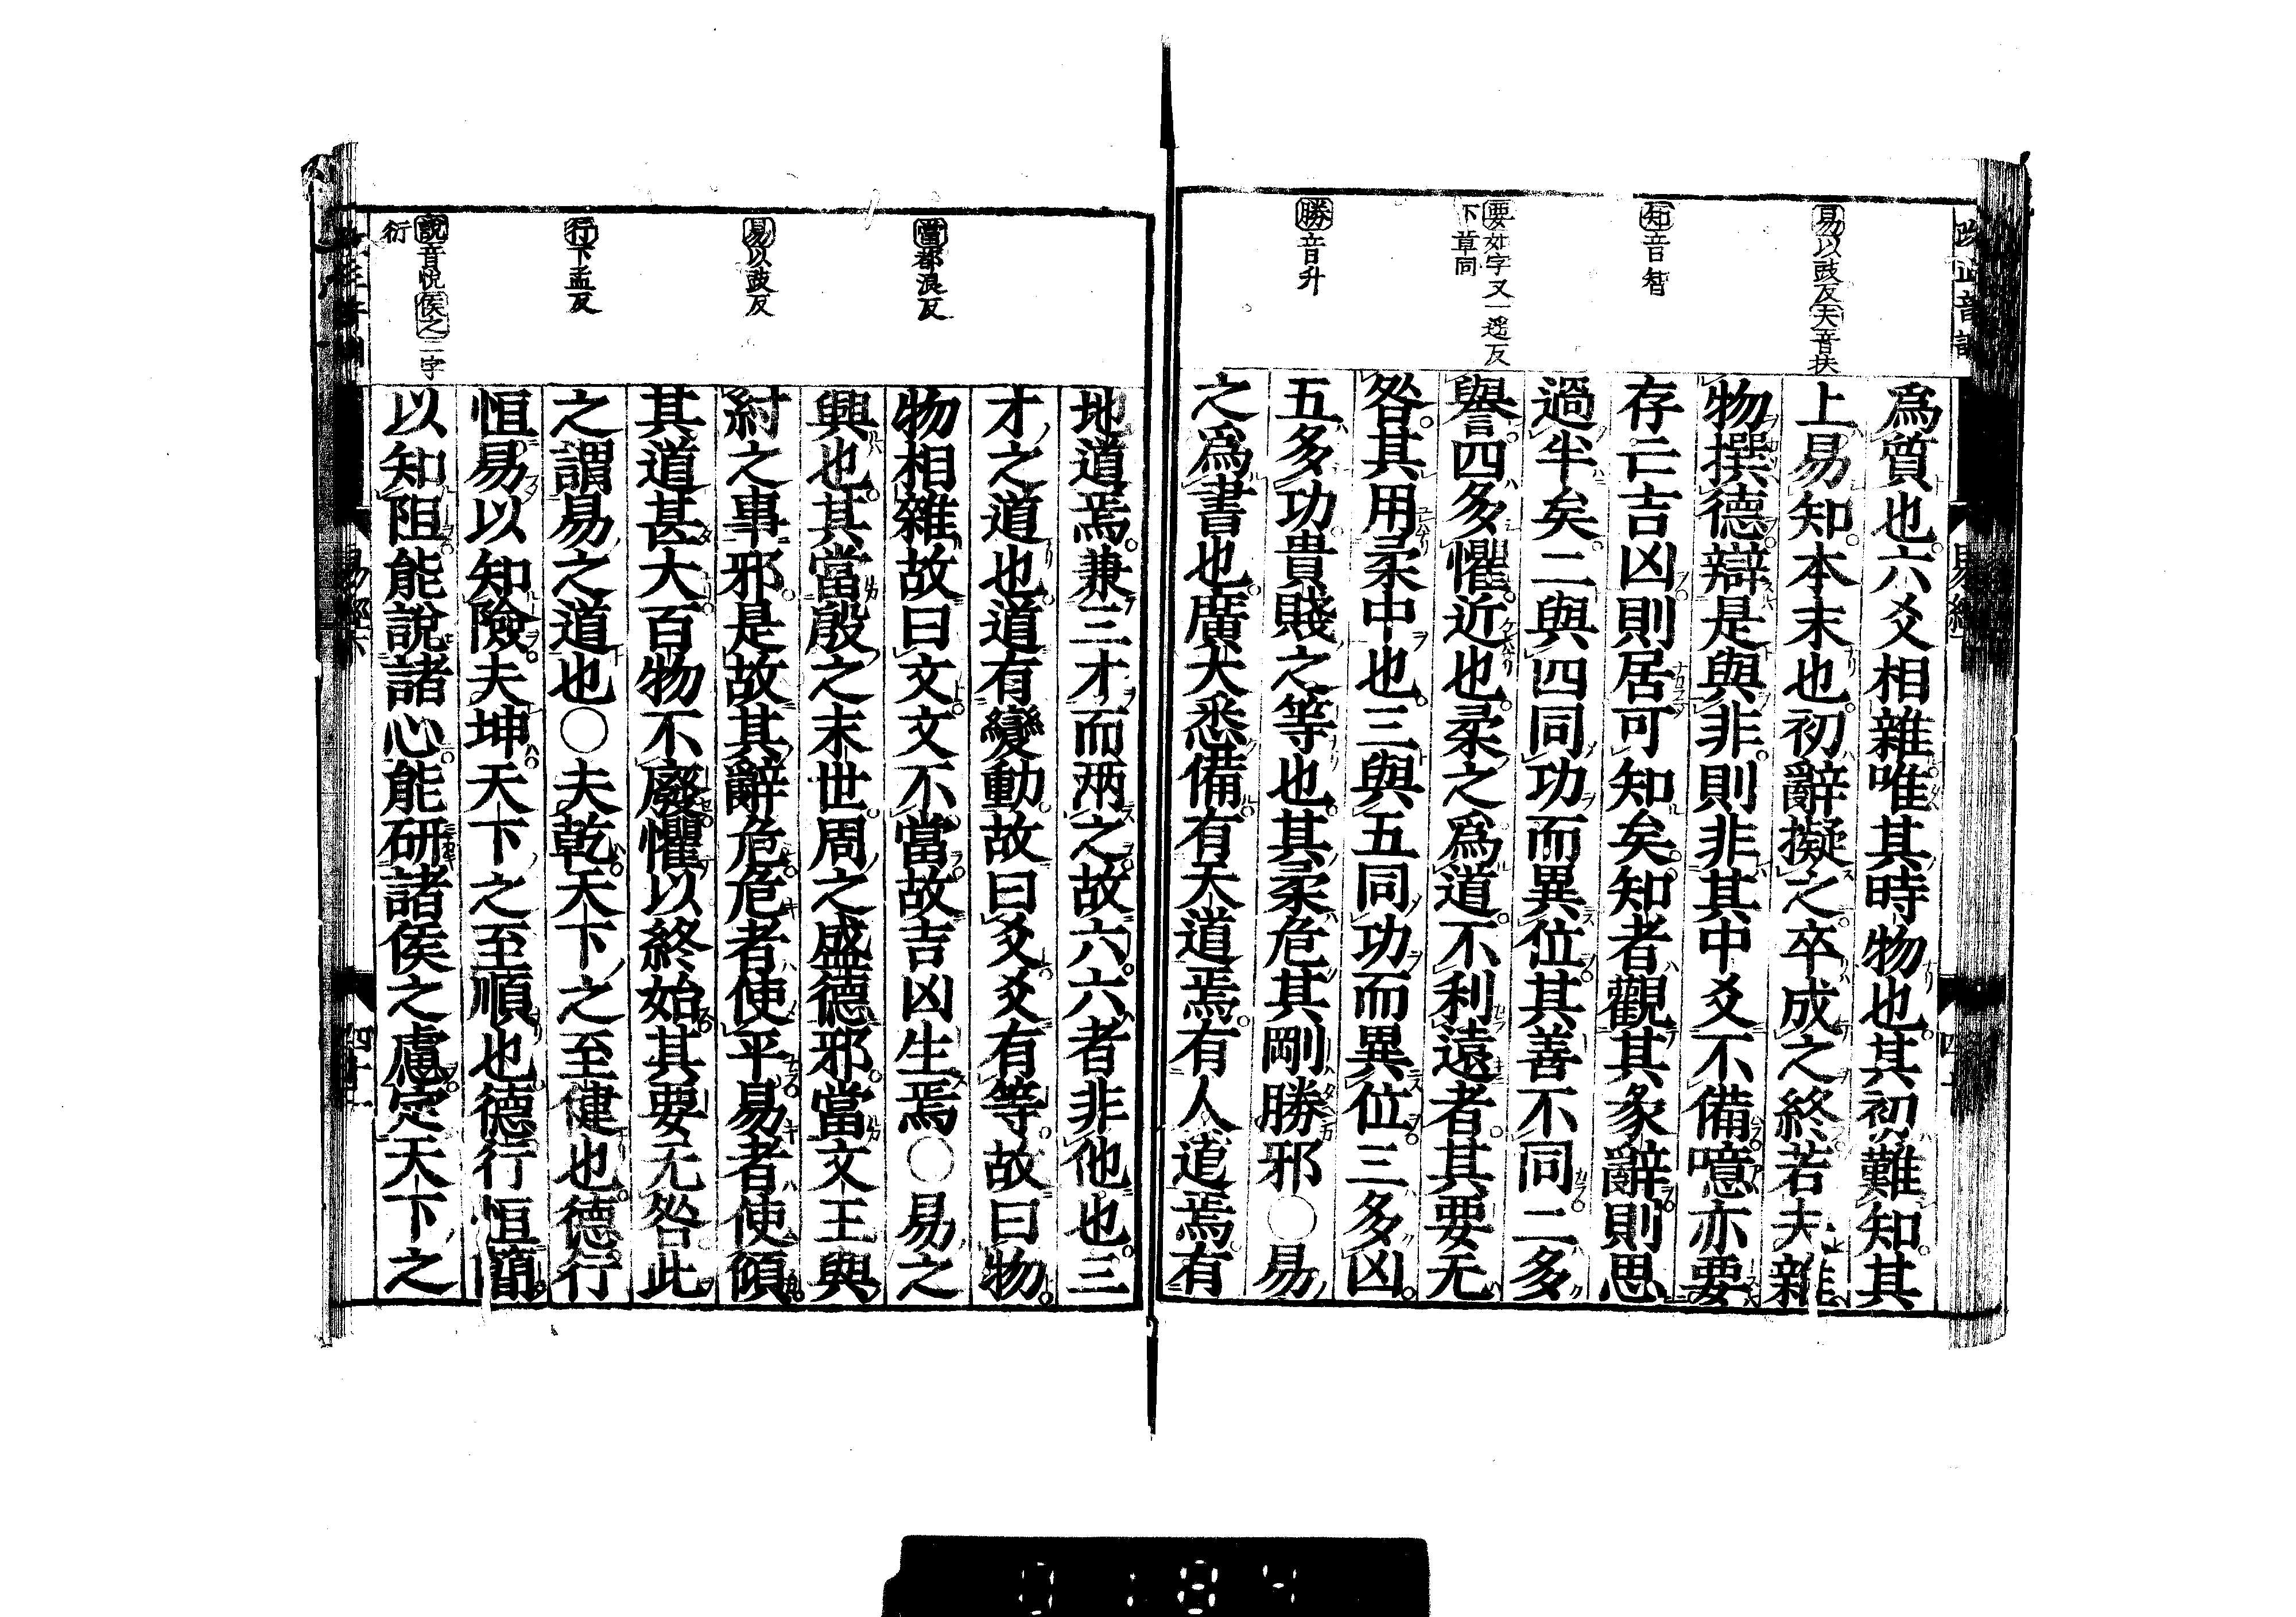 易以豉反夫音扶
知音智
要如字又一遥反
下章同
勝音升
爲質也六爻相雜唯其時物也其初難知其
上易知本末也初辭擬之卒成之終若夫雜
物撰德辯是與非則非其中爻不備噫亦要
存亡吉凶則居可知矣知者觀其彖辭則思
過半矣二與四同功而異位其善不同二多
譽四多懼近也柔之爲道不利遠者其要无
咎其用柔中也三與五同功而異位三多凶
五多功貴賤之等也其柔危其剛勝邪○易
之爲書也廣大悉備有天道焉有人道焉有
當都浪反
易以豉反
行下孟反
說音悅侯之二字
衍
地道焉兼三才而兩之故六六者非他也三
才之道也道有變動故曰爻爻有等故曰物
物相雜故曰文文不當故吉凶生焉○易之
興也其當殷之末世周之盛德邪當文王與
紂之事邪是故其辭危危者使平易者使傾
其道甚大百物不廢懼以終始其要无咎此
之謂易之道也○夫乾天下之至健也德行
恒易以知險夫坤天下之至順也德行恒簡
以知阻能說諸心能研諸侯之慮定天下之
易經
0184